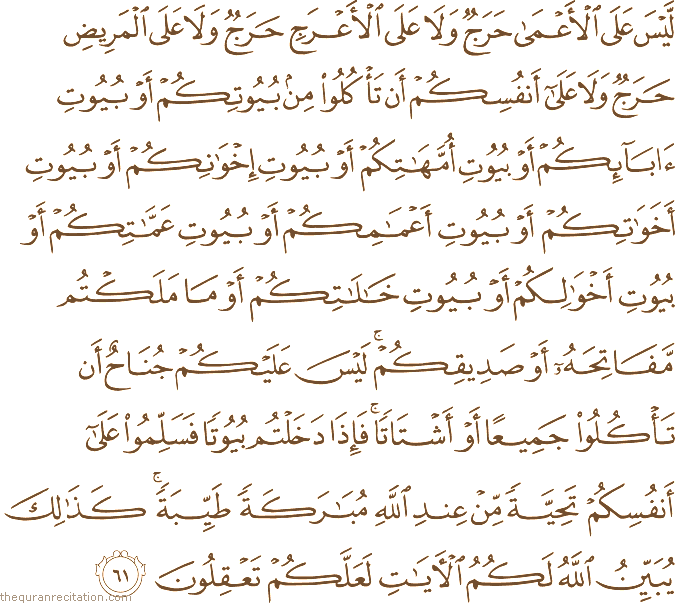 لَّيۡسَ عَلَى ٱلۡأَعۡمَىٰ حَرَجٞ وَلَا عَلَى ٱلۡأَعۡرَجِ حَرَجٞ وَلَا عَلَى ٱلۡمَرِيضِ
حَرَجٞ وَلَا عَلَىٰٓ أَنفُسِكُمۡ أَن تَأۡكُلُواْ مِنۢ بُيُوتِكُمۡ أَوۡ بُيُوتِ
ءَابَآئِكُمۡ أَوۡ بُيُوتِ أُمَّهَٰتِكُمۡ أَوۡ بُيُوتِ إِخۡوَٰنِكُمۡ أَوۡ بُيُوتِ
أَخَوَٰتِكُمۡ أَوۡ بُيُوتِ أَعۡمَٰمِكُمۡ أَوۡ بُيُوتِ عَمَّٰتِكُمۡ أَوۡ
بُيُوتِ أَخۡوَٰلِكُمۡ أَوۡ بُيُوتِ خَٰلَٰتِكُمۡ أَوۡ مَا مَلَكۡتُم
مَّفَاتِحَهُۥٓ أَوۡ صَدِيقِكُمۡۚ لَيۡسَ عَلَيۡكُمۡ جُنَاحٌ أَن
تَأۡكُلُواْ جَمِيعًا أَوۡ أَشۡتَاتٗاۚ فَإِذَا دَخَلۡتُم بُيُوتٗا فَسَلِّمُواْ عَلَىٰٓ
أَنفُسِكُمۡ تَحِيَّةٗ مِّنۡ عِندِ ٱللَّهِ مُبَٰرَكَةٗ طَيِّبَةٗۚ كَذَٰلِكَ
يُبَيِّنُ ٱللَّهُ لَكُمُ ٱلۡأٓيَٰتِ لَعَلَّكُمۡ تَعۡقِلُونَ ٦١
thequranrecitation.com